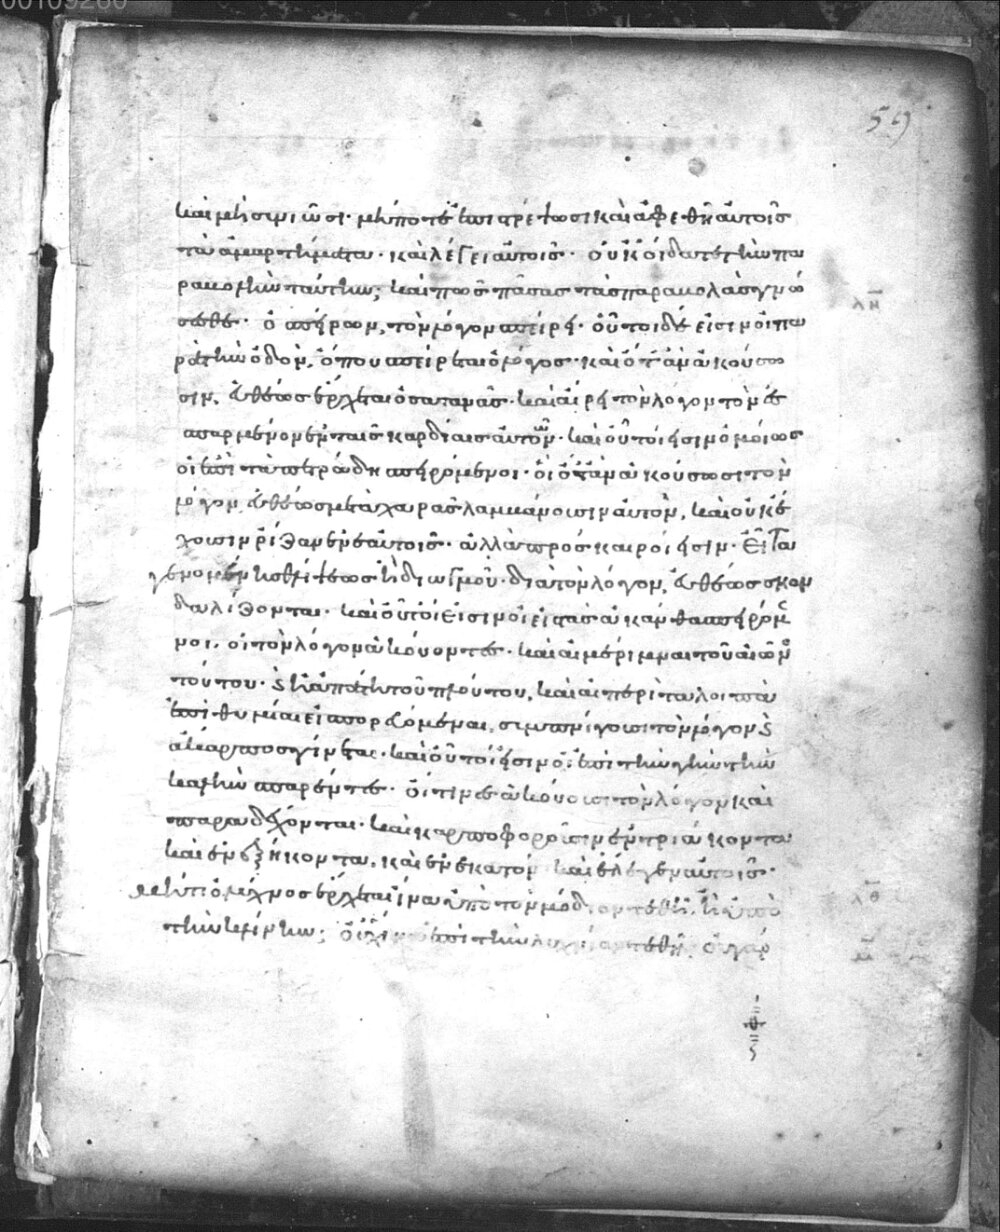 00109260
59
καὶ μὴ συνιῶσι· μήποτε ἐπιστρέψωσι καὶ ἀφεθῆ αὐτοῖς
τὰ ἁμαρτήματα· καὶ λέγει αὐτοῖς· οὐκ οἴδατε τὴν πα
ραβολὴν ταύτην; καὶ πῶς πάσας τὰς παραβολὰς γνώ
σεσθε· ὁ σπείρων, τὸν λόγον σπείρει· οὗτοι δέ εἰσιν οἱ πα
ρὰ τὴν ὁδὸν, ὅπου σπείρεται ὁ λόγος· καὶ ὅταν ἀκούσω
σιν, εὐθέως ἔρχεται ὁ σατανᾶς· καὶ αἴρει τὸν λόγον τὸν ἐ
σπαρμένον ἐν ταῖς καρδίαις αὐτῶν· καὶ οὗτοι εἰσιν ὁμοίως
οἱ ἐπὶ τὰ πετρώδη σπειρόμενοι· οἳ ὅταν ἀκούσωσι τὸν
λόγον, εὐθέως μετὰ χαρᾶς λαμβάνουσιν αὐτὸν, καὶ οὐκ ἔ
χουσιν ῥίζαν ἐν ἑαυτοῖς· ἀλλὰ πρόσκαιροί εἰσιν· εἶτα
γενομένης θλίψεως ἢ διωγμοῦ· διὰ τὸν λόγον, εὐθέως σκαν
δαλίζονται· καὶ οὗτοί εἰσιν οἱ εἰς τὰς ἀκάνθας σπειρόμε
νοι, οἱ τὸν λόγον ἀκούοντες· καὶ αἱ μέριμναι τοῦ αἰῶνος
τούτου· καὶ ἡ ἀπάτη τοῦ πλούτου, καὶ αἱ περὶ τὰ λοιπὰ
ἐπιθυμίαι εἰσπορευόμεναι, συμπνίγουσι τὸν λόγον καὶ
ἄκαρπος γίνεται· καὶ οὗτοί εἰσιν οἱ ἐπὶ τὴν γῆν τὴν
καλὴν σπαρέντες· οἵτινες ἀκούουσι τὸν λόγον καὶ
παραδέχονται· καὶ καρποφοροῦσιν ἐν τριάκοντα
καὶ ἐν ἑξήκοντα, καὶ ἐν ἑκατόν καὶ ἔλεγεν αὐτοῖς·
μήτι ὁ λύχνος ἔρχεται ἵνα ὑπὸ τὸν μόδιον τεθῆ, ἢ ὑπὸ
τὴν κλίνην; οὐχ ἵνα ἐπὶ τὴν λυχνίαν τεθῆ· οὐ γάρ
λη
λθ
μ